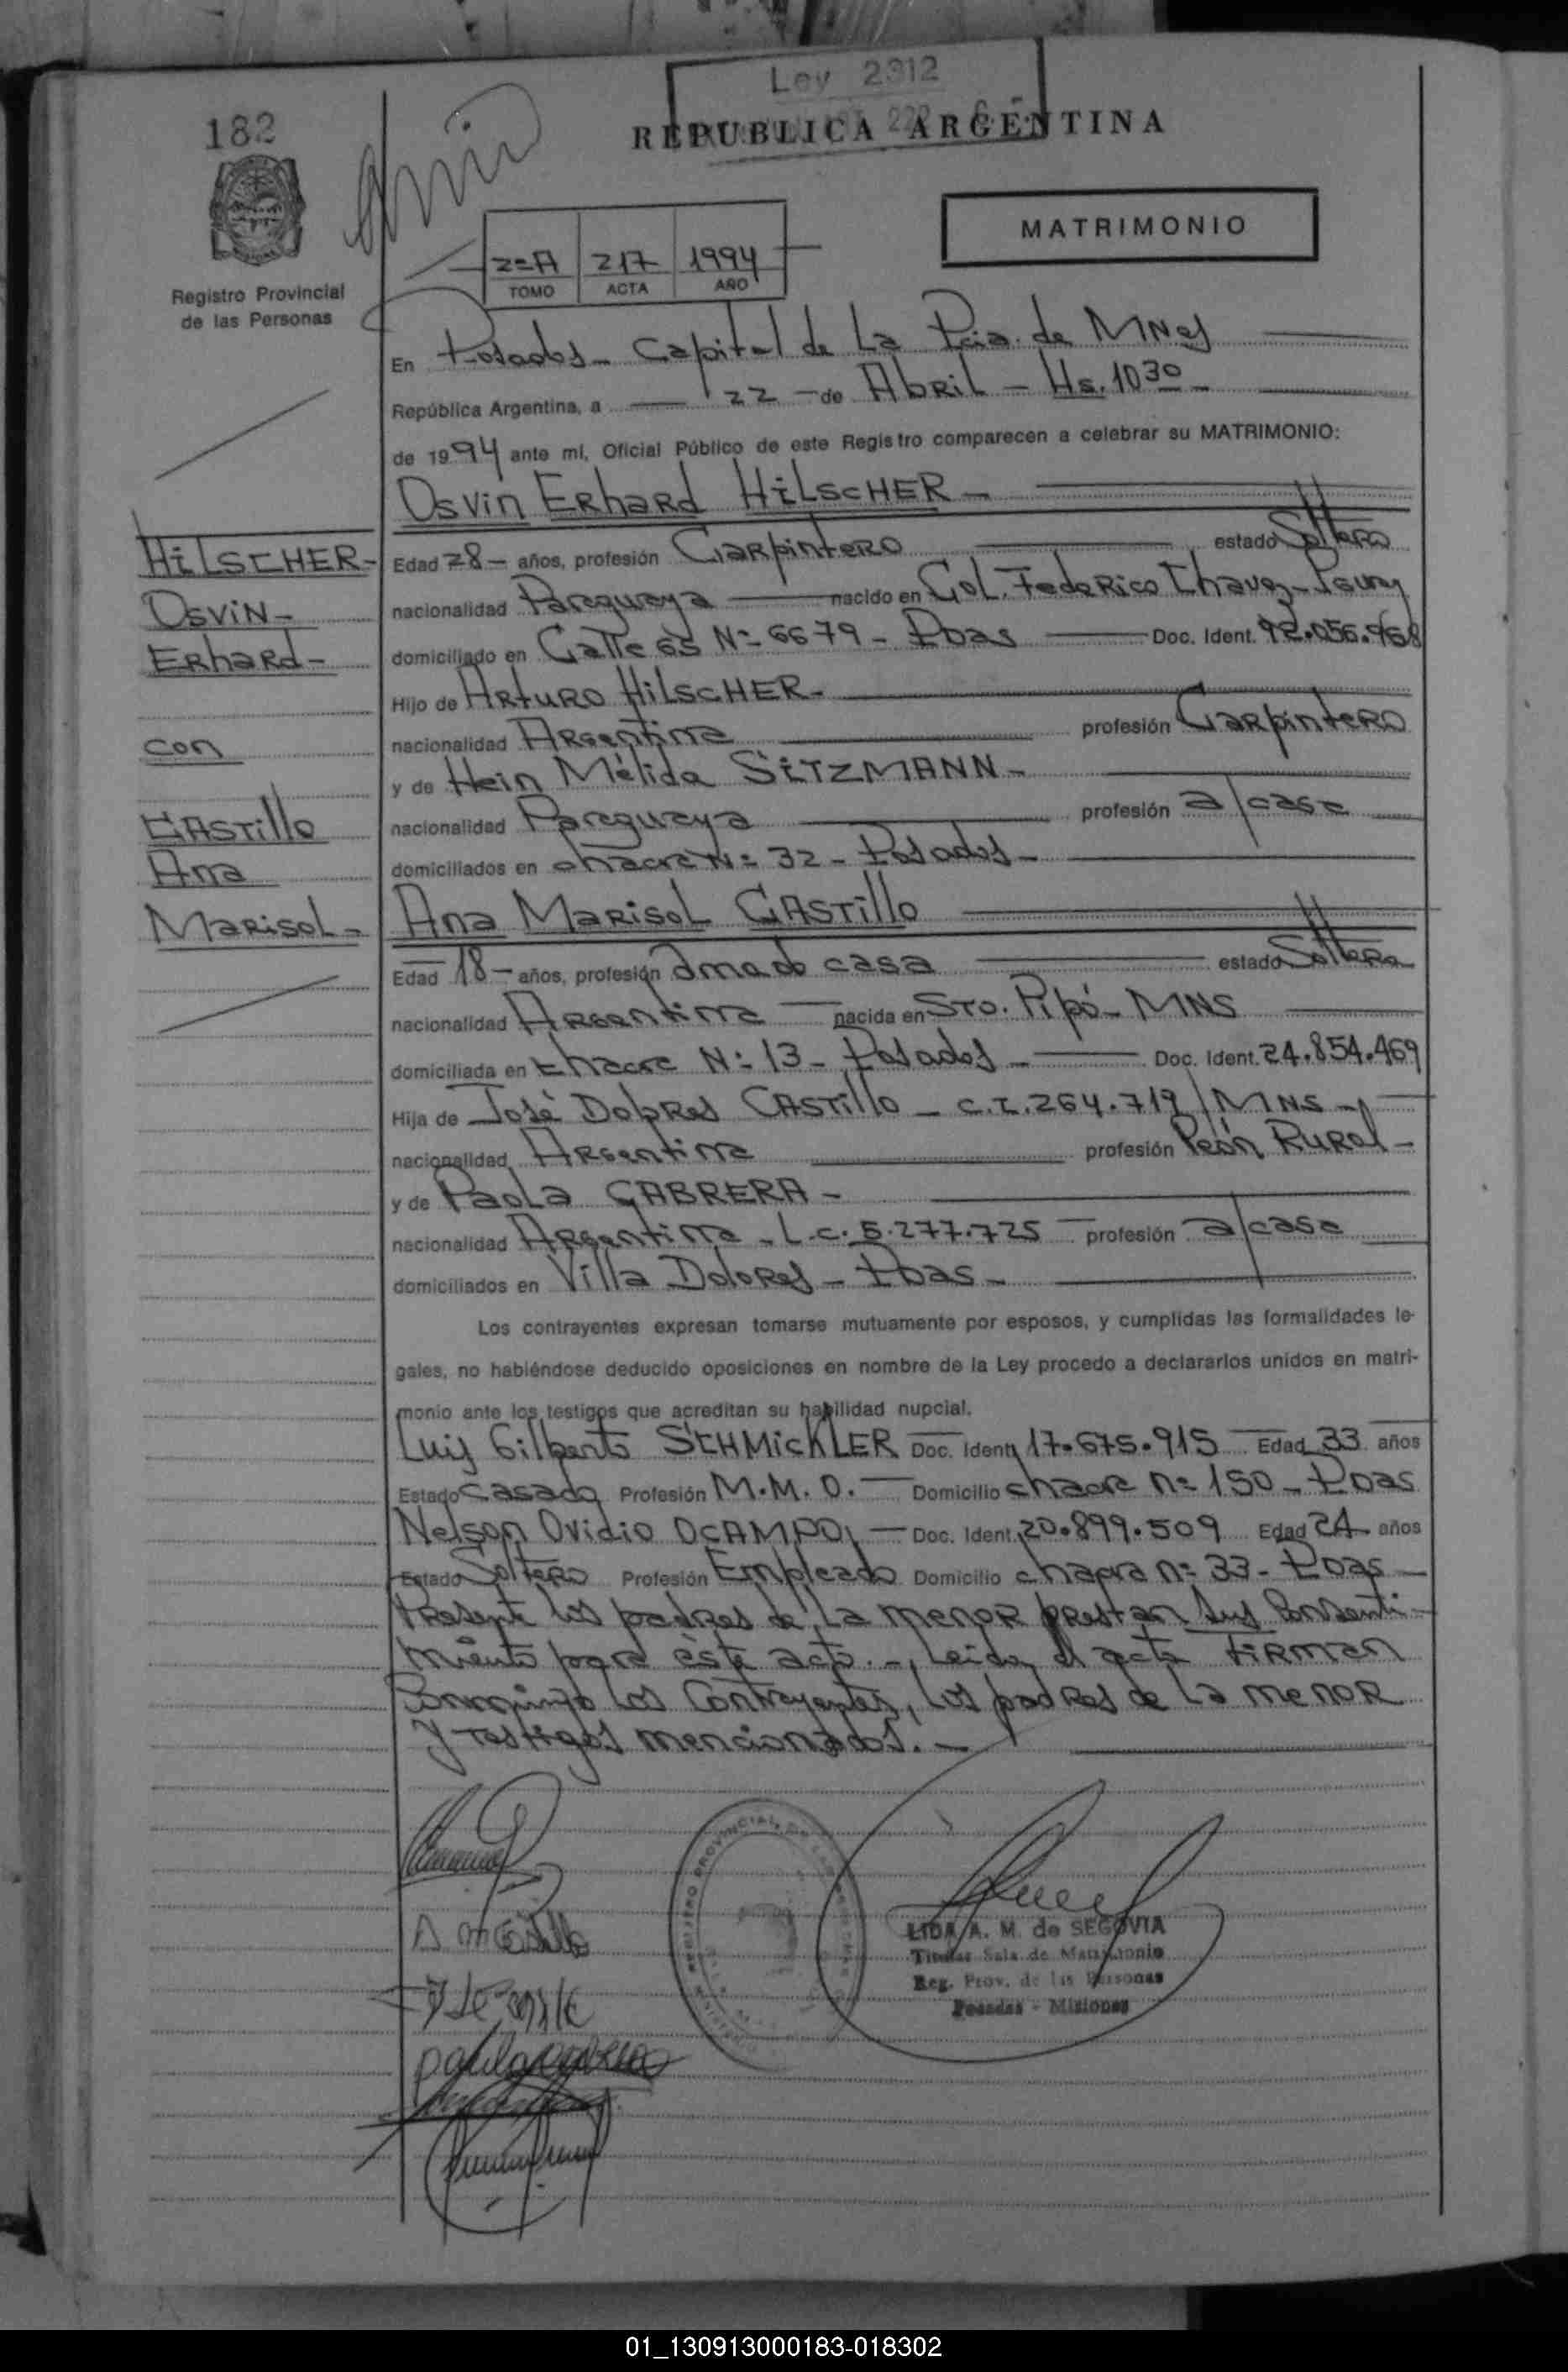 Ley 2312
182
REPUBLICA ARGENTINA
MATRIMONIO
2=A 217 1994
TOMO ACTA AÑO
Registro Provincial
de las Personas
En Posadas - Capital de La Pcia. de MNes
República Argentina, a 22 - de Abril - Hs. 10 30 -
de 1994 ante mí, Oficial Público de este Registro comparecen a celebrar su MATRIMONIO:
Osvin Erhard HilscHER -
HilSCHER -
Osvin -
Erhard -
con
CASTillo
Ana
Marisol -
Edad 28 - años, profesión Carpintero estado Soltero
nacionalidad Paraguaya nacido en Col. Federico Chavez -
domiciliado en Calle 65 Nº 6679 - Pdas Doc. Ident. 92.056.968
Hijo de Arturo HilscHER -
nacionalidad Argentina profesión Carpintero
y de Hein Mélida SETZMANN -
nacionalidad Paraguaya profesión a/casa
domiciliados en chacra Nº 32 - Posadas -
Ana Marisol CASTillo
Edad 18 - años, profesión ama de casa estado Soltera
nacionalidad Argentina nacida en Sto. Pipó - MNS
domiciliada en chacra Nº 13 - Posadas - Doc. Ident. 24.854.469
Hija de José Dolores CASTillo - C.I. 264.719/MNS -
nacionalidad Argentina profesión Peón Rural -
y de Paola CABRERA -
nacionalidad Argentina - L.C. 5.277.725 profesión a/casa
domiciliados en Villa Dolores - Pdas -
Los contrayentes expresan tomarse mutuamente por esposos, y cumplidas las formalidades le-
gales, no habiéndose deducido oposiciones en nombre de la Ley procedo a declararlos unidos en matri-
monio ante los testigos que acreditan su habilidad nupcial.
Luis Gilberto SCHMickLER Doc. Ident. 17.675.915 Edad 33 años
Estado casado Profesión M.M.O. Domicilio chacra nº 150 - Pdas
Nelson Ovidio OCAMPO, Doc. Ident. 20.899.509 Edad 24 años
Estado Soltero Profesión Empleado Domicilio chacra nº 33 - Pdas -
Presente los padres de la menor prestan sus Consenti-
miento para éste acto. -, Leida el acta Firman
Conmigo los Contrayentes, los padres de la menor
y testigos mencionados. -
LIDA A. M. de SEGOVIA
Titular Sala de Matrimonio
Reg. Prov. de las Personas
Posadas - Misiones
01_130913000183-018302